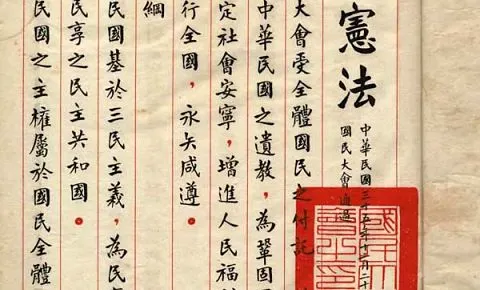 憲法
中華民國三十五年十二月二十
國民大會通過
大會受全體國民之付託
中華民國之遺教,為鞏固國
定社會安寧,增進人民福
行全國,永矢咸遵。
綱
民國基於三民主義,為民
民享之民主共和國。
民國之主權屬於國民全體
國民大
會之印